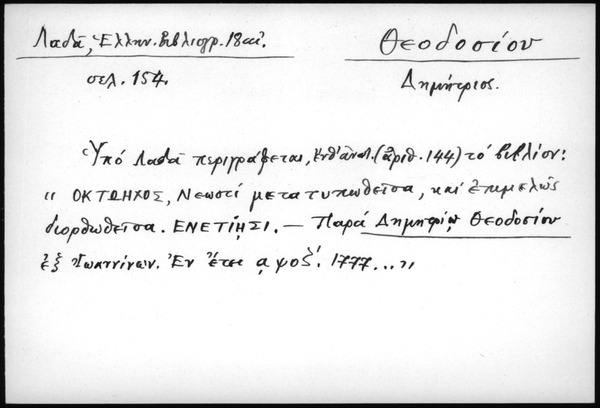 Λαδᾶ, Ἑλλην. βιβλιογρ. 18 αἰ.
σελ. 154.
Θεοδοσίου
Δημήτριος.
Ὑπό Λαδᾶ περιγράφεται, ἐνθ' ἀνωτ. (ἀριθ. 144) τό βιβλίον:
"ΟΚΤΩΗΧΟΣ, Νεωστί μετατυπωθεῖσα, καί ἐπιμελῶς
διορθωθεῖσα. ΕΝΕΤΙΗΣΙ. — Παρά Δημητρίῳ Θεοδοσίου
ἐξ Ἰωαννίνων. Ἐν ἔτει ᾳψοζ΄. 1777..."